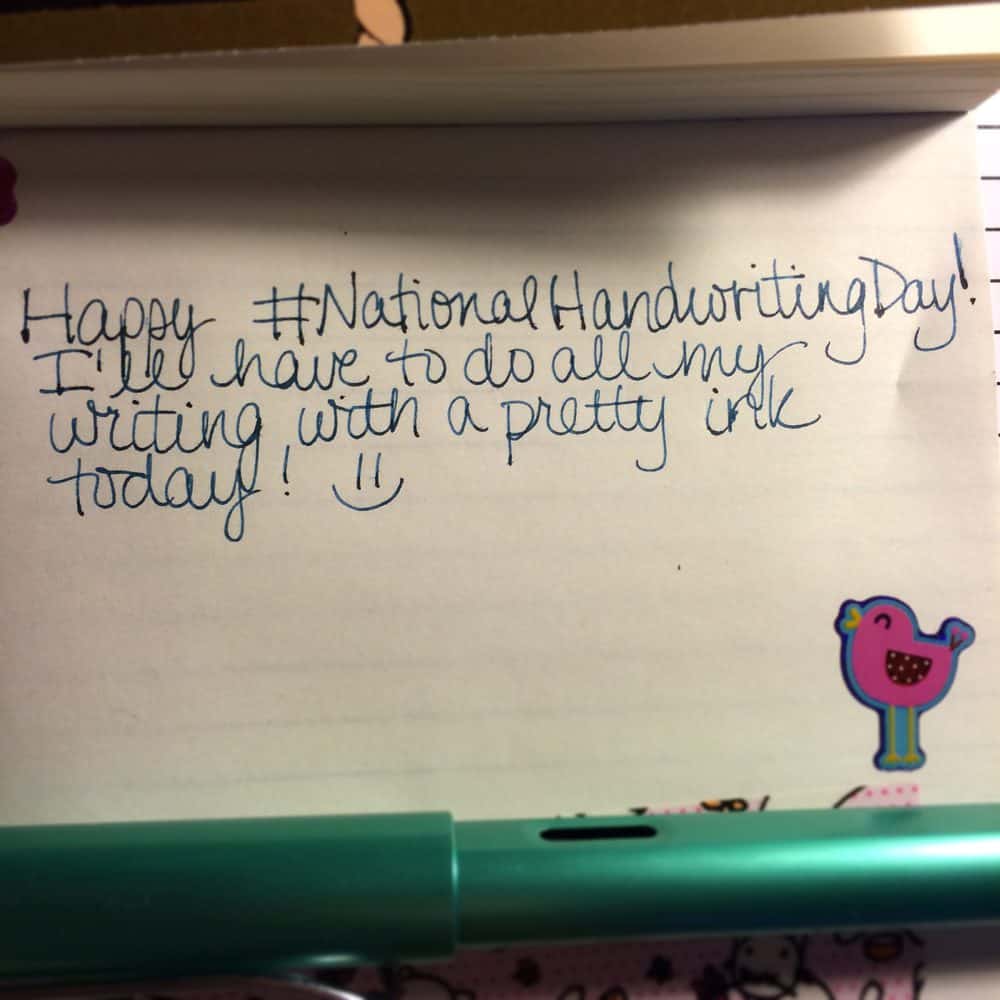 Happy #NationalHandwritingDay!
I'll have to do all my
writing with a pretty ink
today! :)